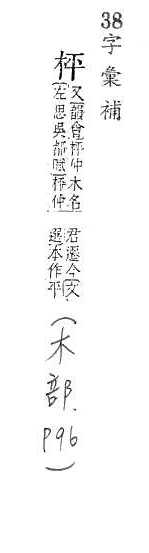 38字彙補
枰
又韻會枰仲木名
左思吳都賦枰仲
君遷今文
選本作平
(木部. P96)